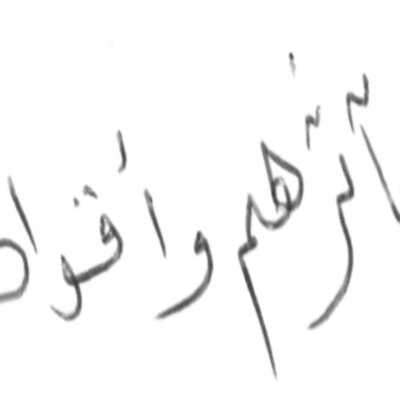 آثرهم وأقوا